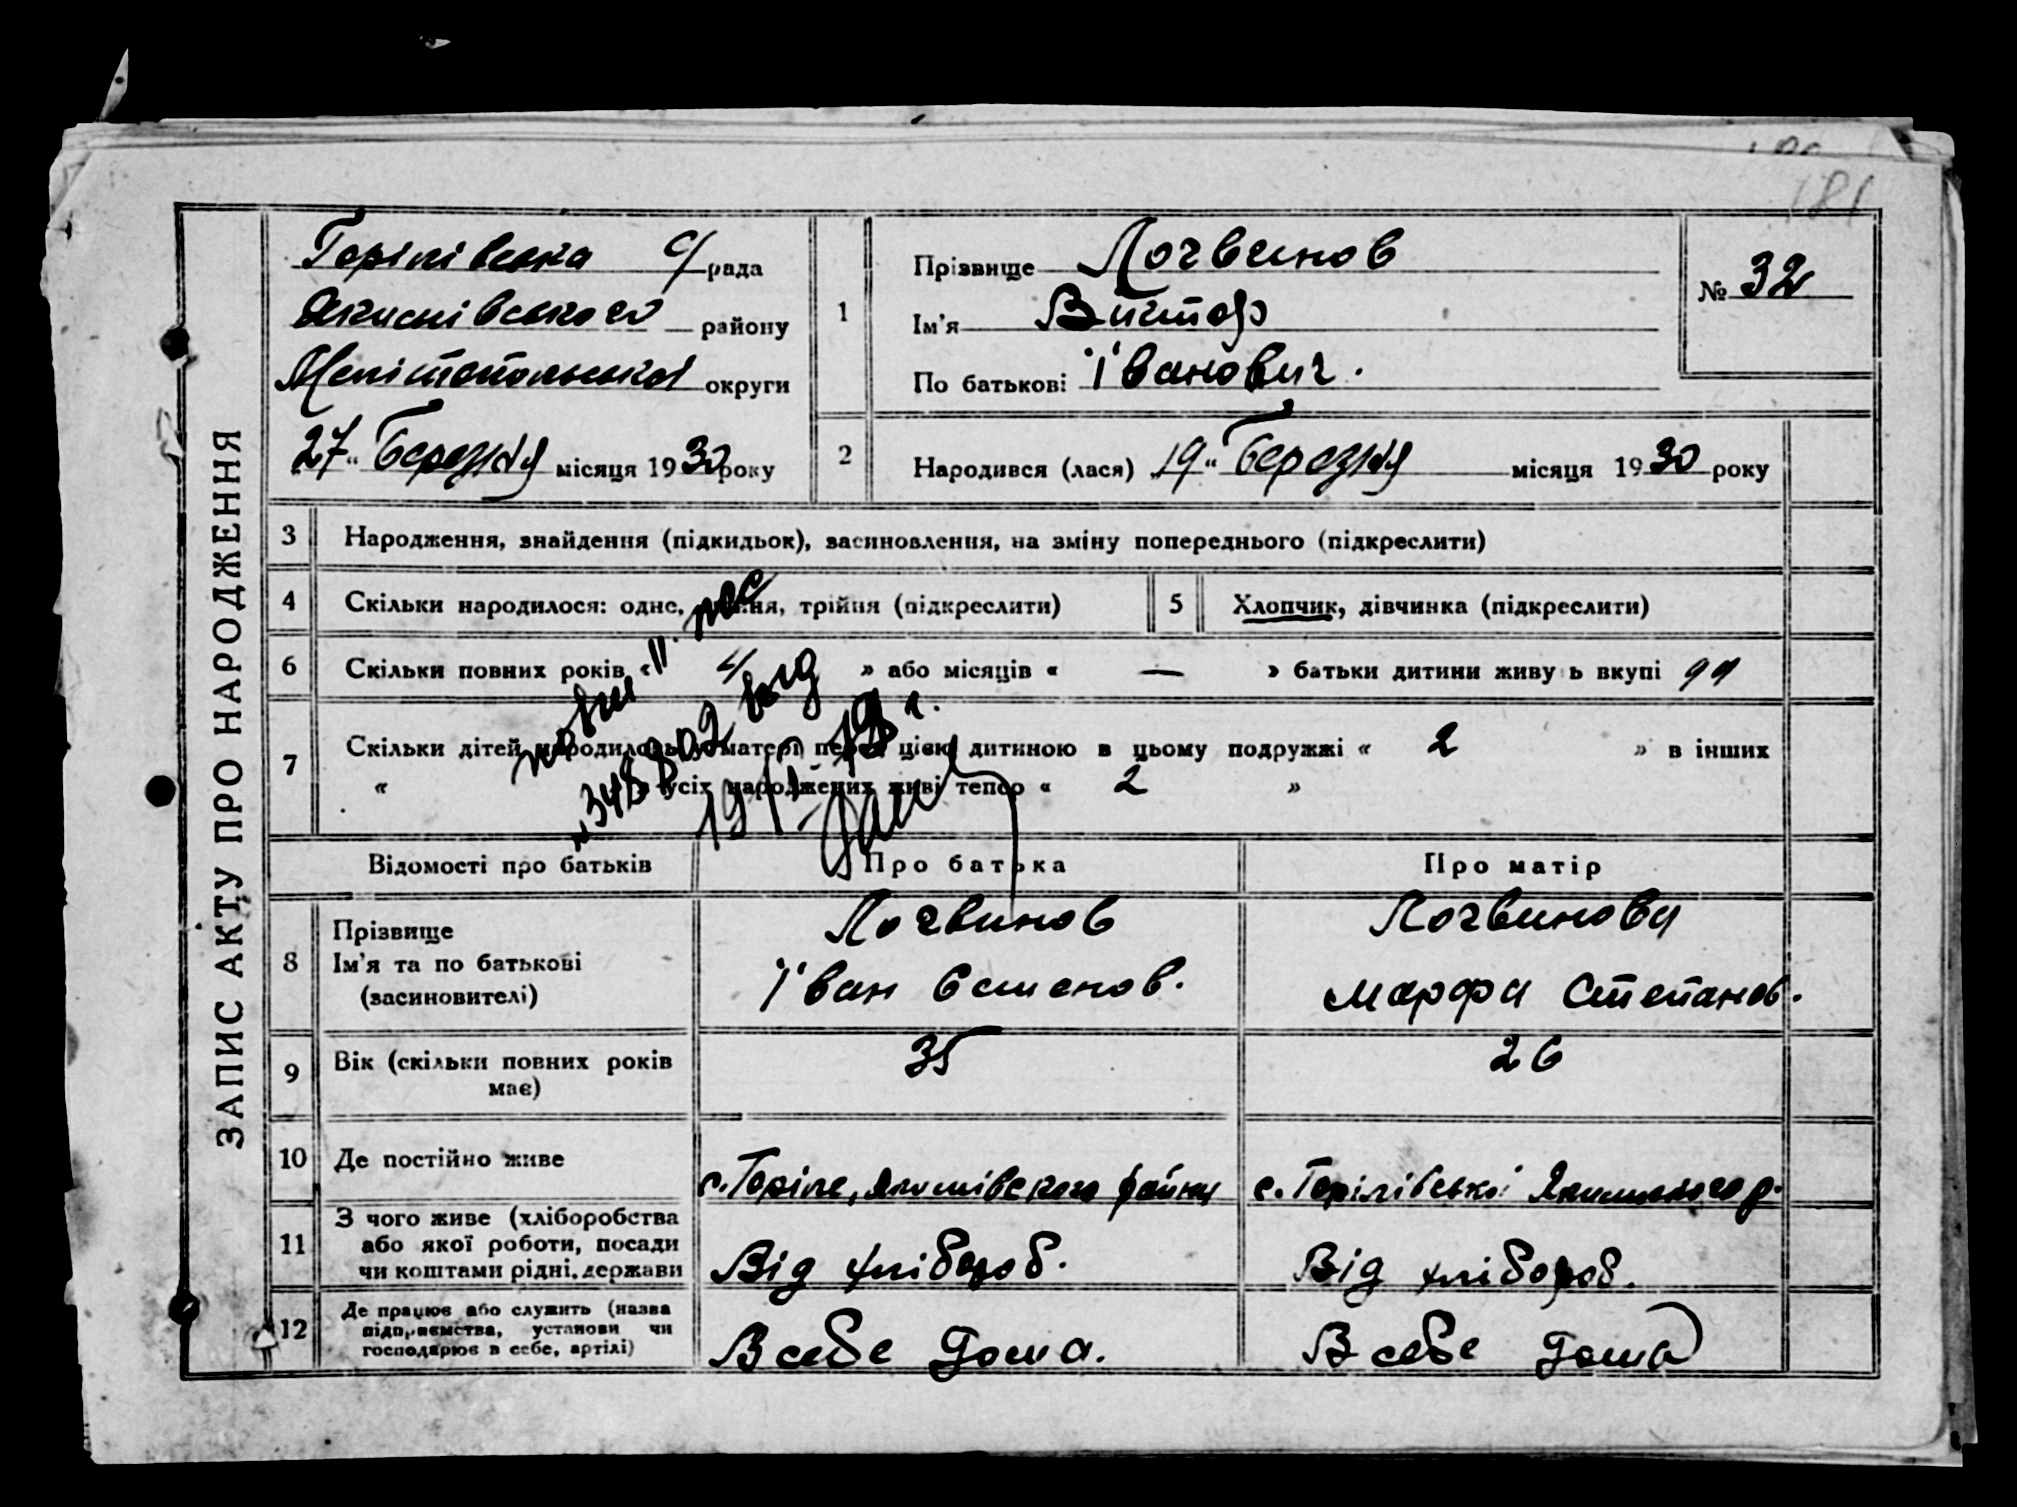 181
ЗАПИС АКТУ ПРО НАРОДЖЕННЯ
Горілівська с/рада
Якимівського району
Мелітопольської округи
27 " Березня місяця 1930 року
1
Прізвище Логвинов
Ім'я Виктор
По батькові Іванович.
№ 32
2
Народився (лася) 19 " Березня місяця 1930 року
3 Народження, знайдення (підкидьок), засиновлення, на зміну попереднього (підкреслити)
4 Скільки народилося: одне, двійня, трійня (підкреслити)
5 Хлопчик, дівчинка (підкреслити)
6 Скільки повних років « 4 » або місяців « — » батьки дитини живуть вкупі
7 Скільки дітей народилось у матері перед цією дитиною в цьому подружжі « 2 » в інших
« » усіх народжених живі тепер « 2 »
Відомості про батьків Про батька Про матір
8 Прізвище
Ім'я та по батькові
(засиновителі)
Логвинов
Іван Семенов.
Логвинова
Марфа Степанов.
9 Вік (скільки повних років має) 35 26
10 Де постійно живе
с. Горіле, Якимівського району
с. Горілівської Якимівського р.
11 З чого живе (хліборобства
або якої роботи, посади
чи коштами рідні, держави
Від хлібороб.
Від хлібороб.
12 Де працює або служить (назва
підприємства, установи чи
господарює в себе, артілі)
В себе дома.
В себе дома